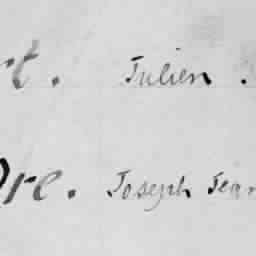 rt. Julien.
re. Joseph Jean